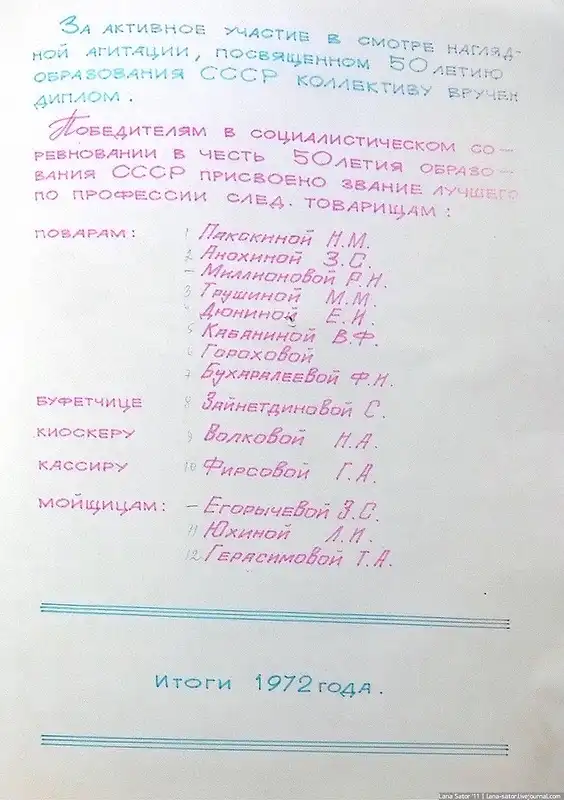 За активное участие в смотре нагляд-
ной агитации, посвященном 50летию
образования СССР коллективу вручен
диплом.
Победителям в социалистическом со-
ревновании в честь 50летия образо-
вания СССР присвоено звание лучшего
по профессии след. товарищам:
поварам: 1 Пакскиной Н.М.
2 Анохиной З.С.
– Миллионовой Р.Н.
3 Трушиной М.М.
4 Дюниной Е.И.
5 Кабаниной В.Ф.
6 Гороховой
7 Бухаралеевой Ф.Н.
буфетчице 8 Зайнетдиновой С.
киоскеру 9 Волковой Н.А.
кассиру 10 Фирсовой Г.А.
мойщицам: – Егорычевой З.С.
11 Юхиной Л.И.
12 Герасимовой Т.А.
Итоги 1972 года.
Lana Sator '11 | lana-sator.livejournal.com